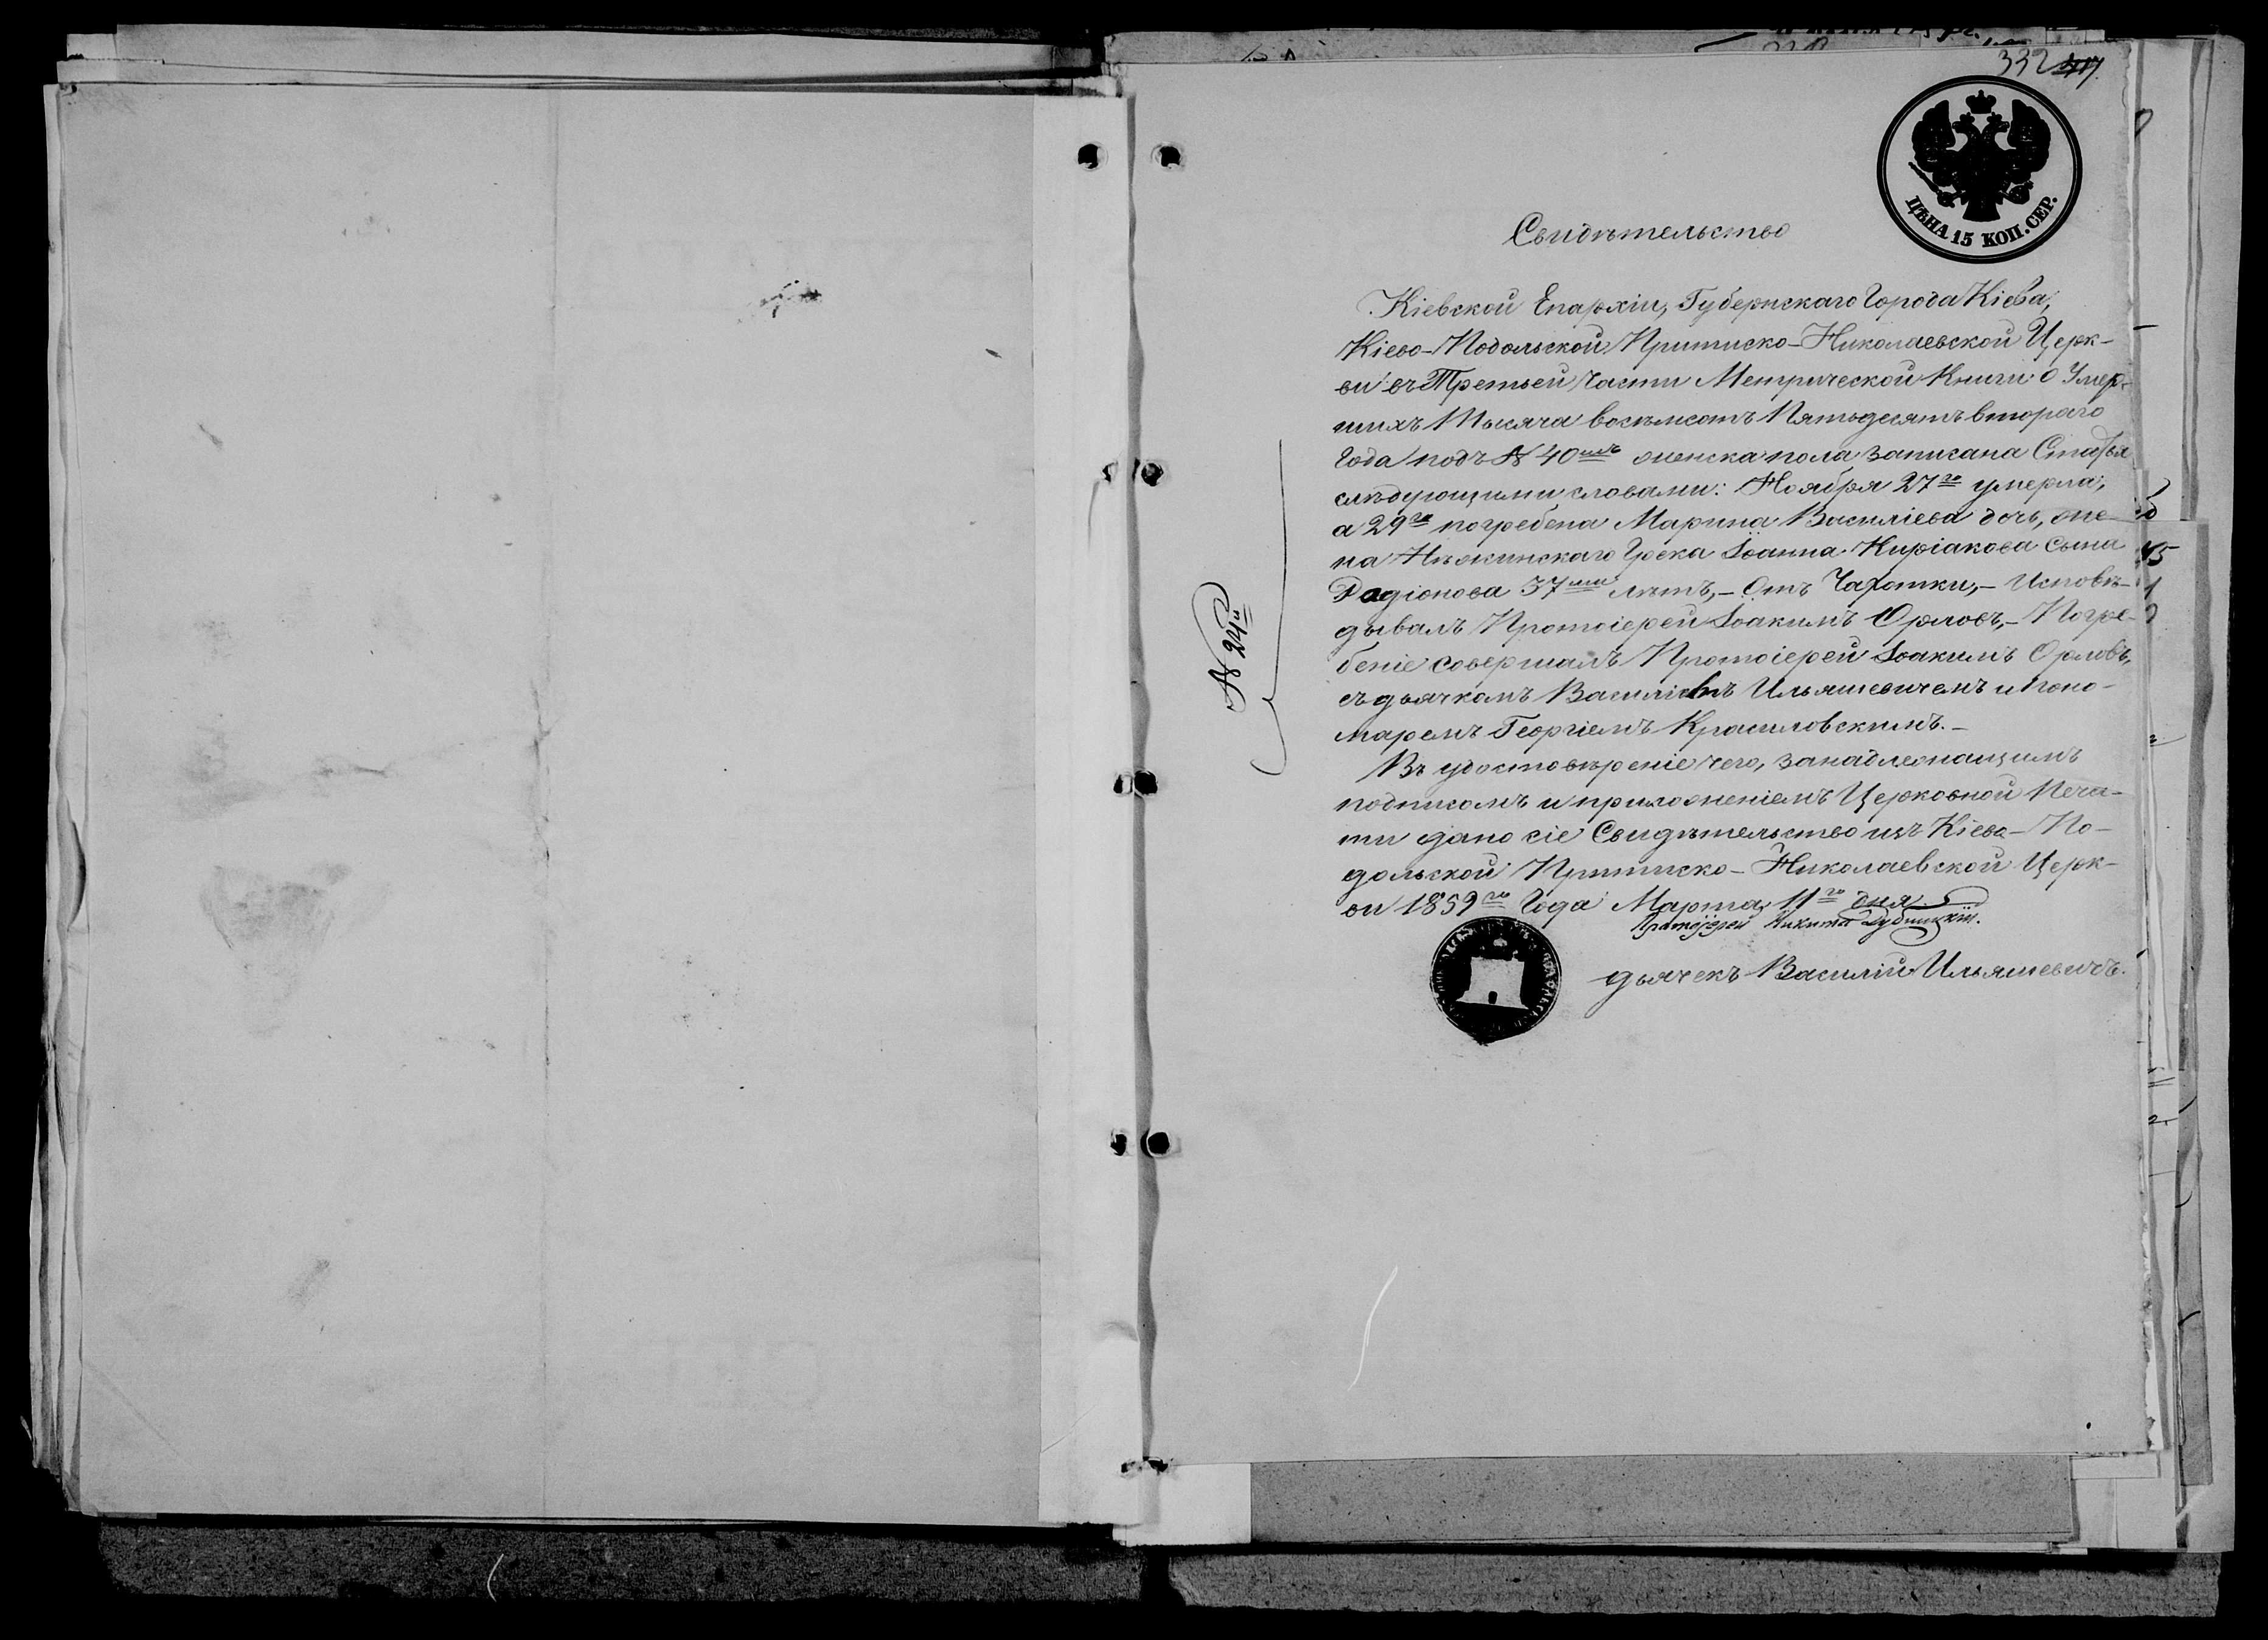 332
ЦѢНА 15 КОП. СЕР.
Свидѣтельство
Кіевской Епархіи, Губернскаго Города Кіева,
Кіево-Подольской Притиско-Николаевской Церк-
ви въ Третьей Части Метрической Книги о Умер-
шихъ Тысяча восѣмсотъ Пятьдесятъ втораго
Года подъ № 40мъ женска пола записана Статья
слѣдующими словами: Ноября 27го умерла,
а 29го погребена Марина Василіева дочь, же-
на Нѣжинскаго Грека Іоанна Киріакова сына
Радіонова 37ми лѣтъ,- Отъ Чахотки,- Исповѣ-
дывалъ Протоіерей Іоакимъ Орловъ,- Погре-
беніе совершалъ Протоіерей Іоакимъ Орловъ,
съ дьячкомъ Василіемъ Ильяшевичемъ и поно-
маремъ Георгіемъ Красиловскимъ.-
Въ удостовѣреніе чего, за надлежащимъ
подписомъ и приложеніемъ Церковной Печа-
ти дано сіе Свидѣтельство изъ Кіево-По-
дольской Притиско-Николаевской Церк-
ви 1859го Года Марта 11го дня
Протоіерей Никита Дубницкій.
дьячекъ Василій Ильяшевичъ.
№ 24й